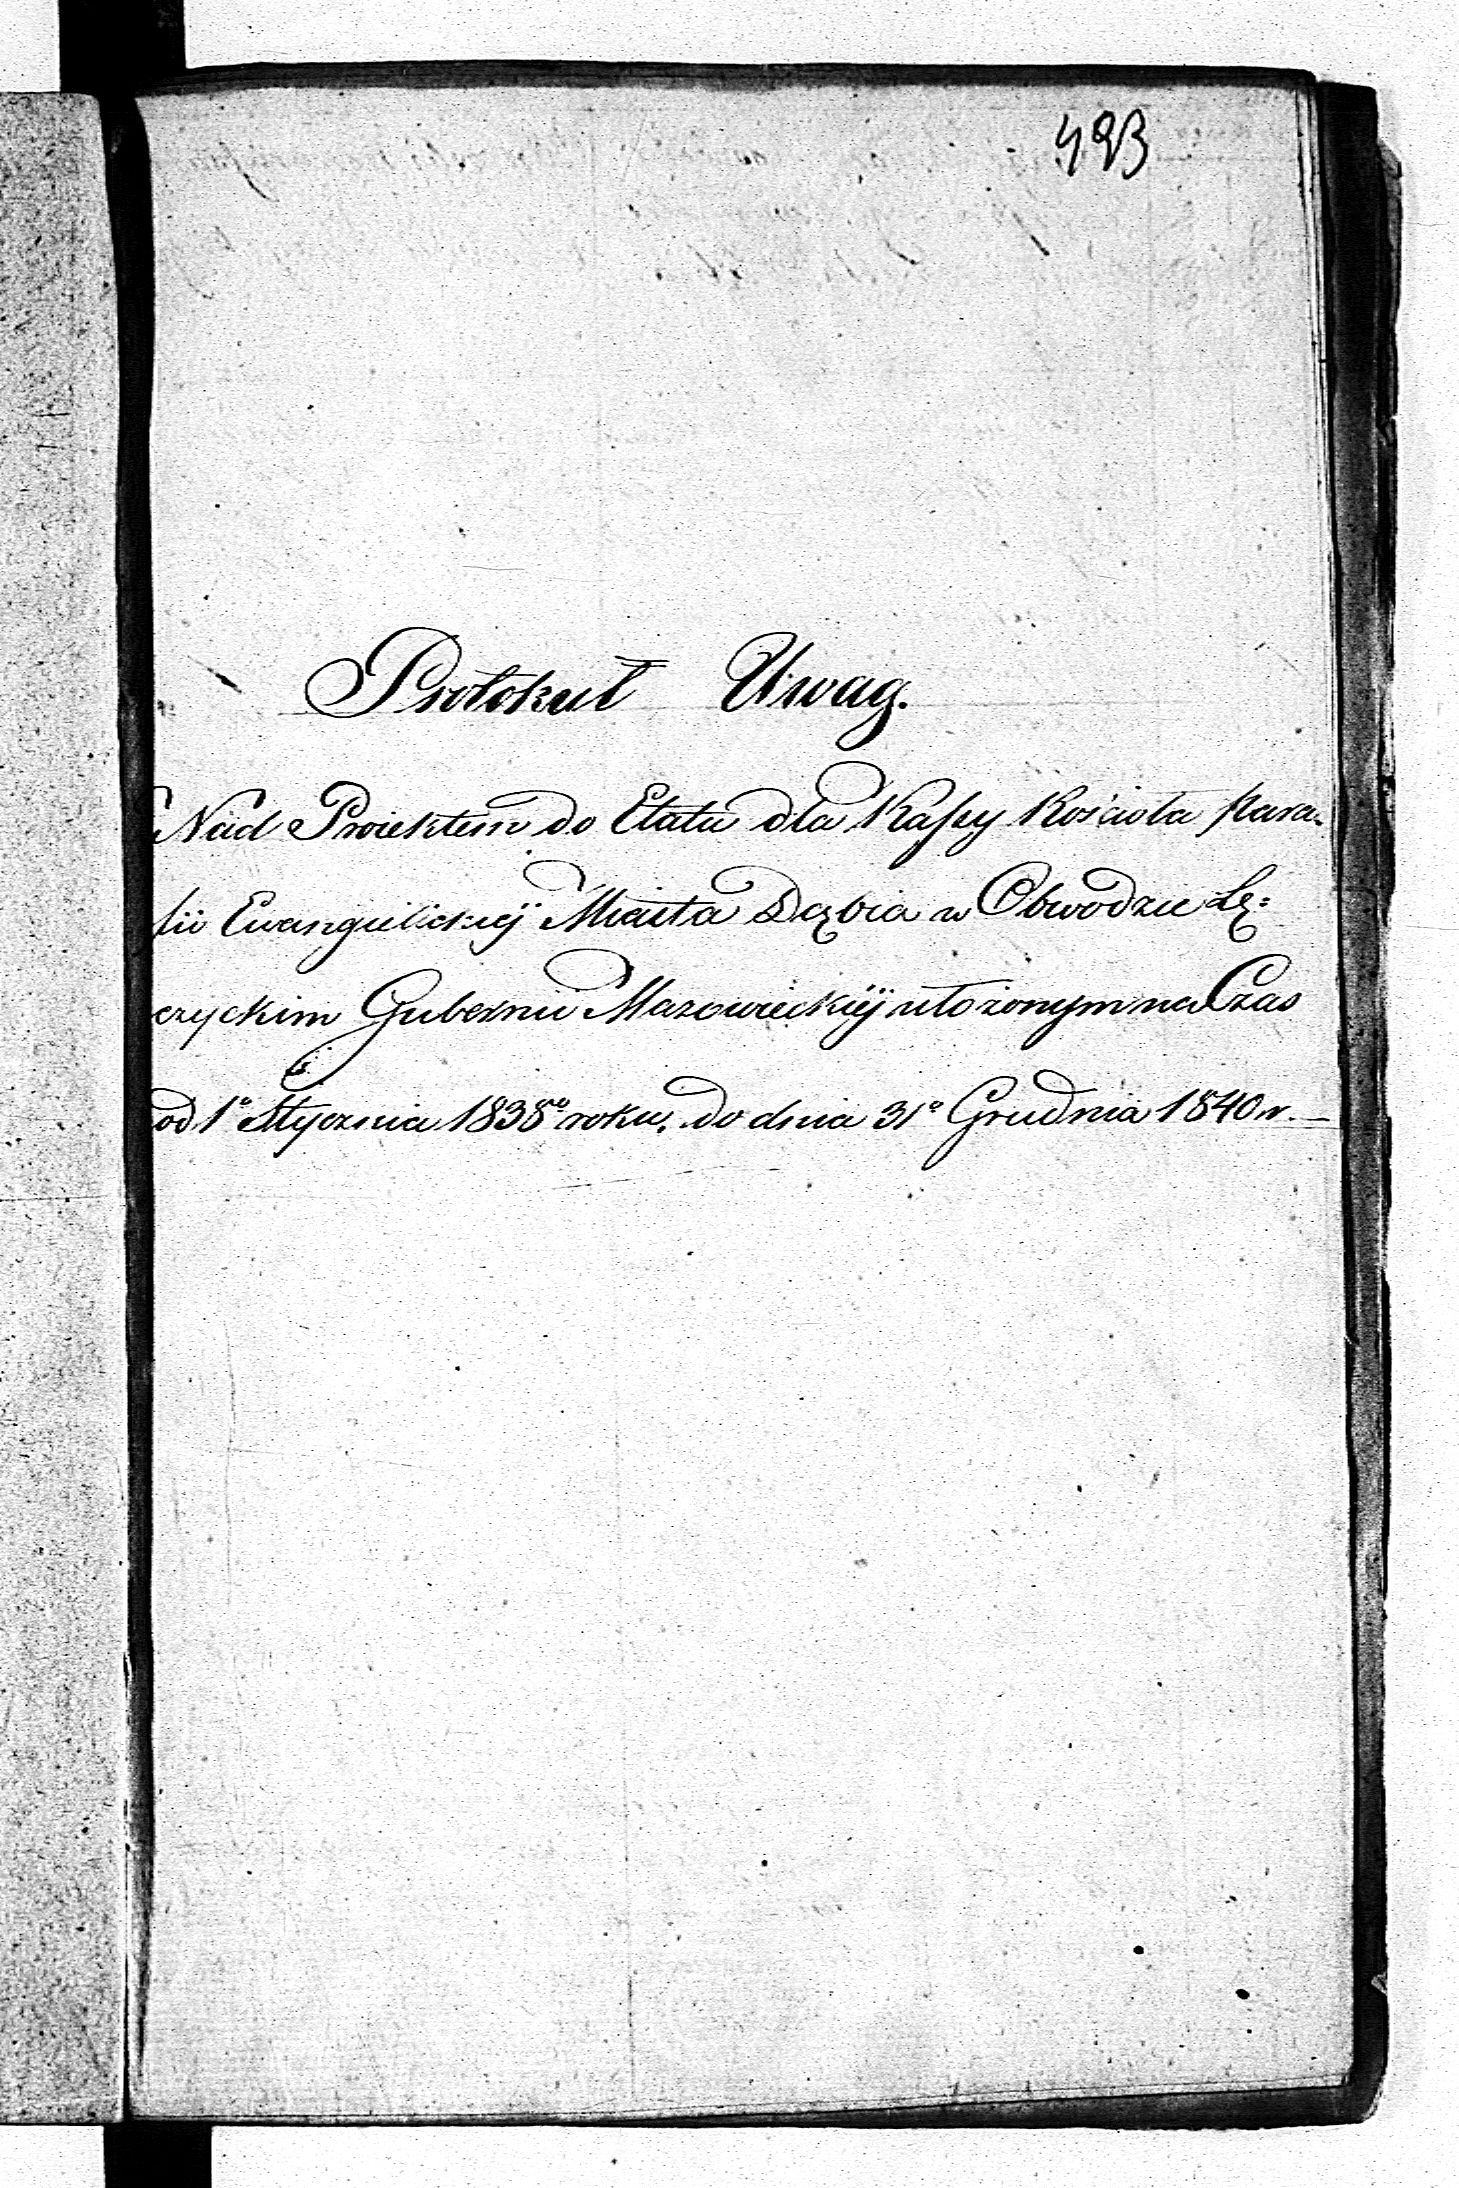 493
Protokuł Uwag.
Nad Proiektem do Etatu dla Kassy Kościoła para-
fii Ewangielickiéj Miasta Dąbia w Obwodzie Łę=
czyckim Gubernii Mazowieckiéj ułożonym na Czas
od 1º Stycznia 1838º roku, do dnia 31º Grudnia 1840 r. —